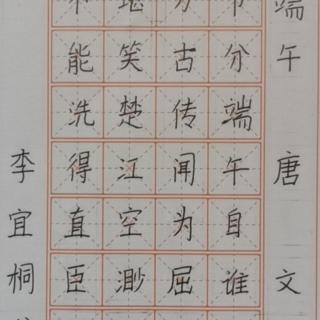 端午 唐 文
节分端午自谁
万古传闻为屈
堪笑楚江空渺
不能洗得直臣
李宜桐